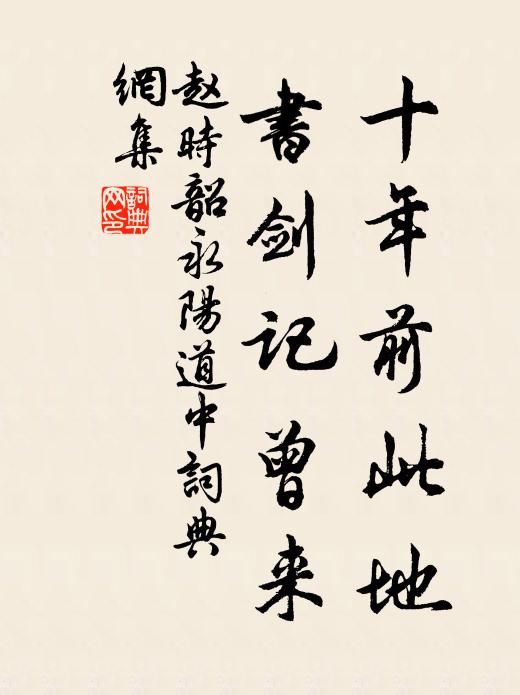 十年前此地
書劍记曾来
赵時韶永陽道中詞典
網集
詞典網印